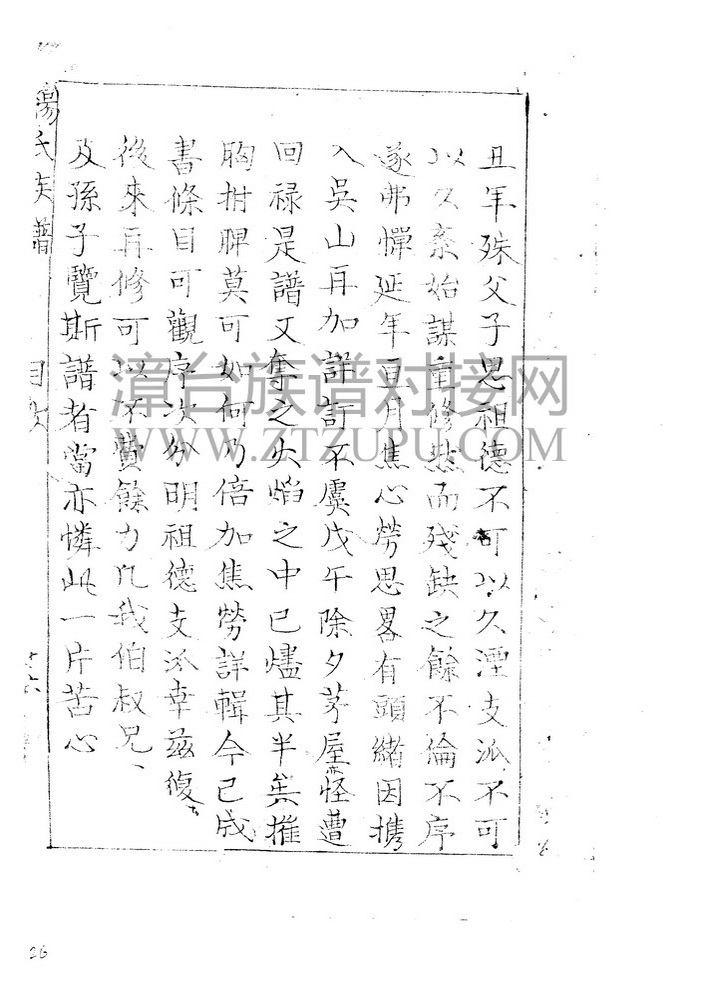 丑年殊父子思祖德不可以久湮支派不可
以久紊始謀重修然而殘缺之餘不倫不序
遂弗憚延年亘月焦心勞思畧有頭緒因攜
入吳山再加詳訂不虞戊午除夕茅屋怪遭
回禄是譜又奪之火焰之中已燼其半矣摧
胸拊脾莫可如何乃倍加焦勞詳輯今已成
書條目可觀序次分明祖德支派幸茲復
後來再修可以不費餘力凡我伯叔兄
及孫子覽斯譜者當亦憐此一片苦心
湯氏族譜
目次
十六
26
漳台族谱对接网
WWW.ZTZUPU.COM